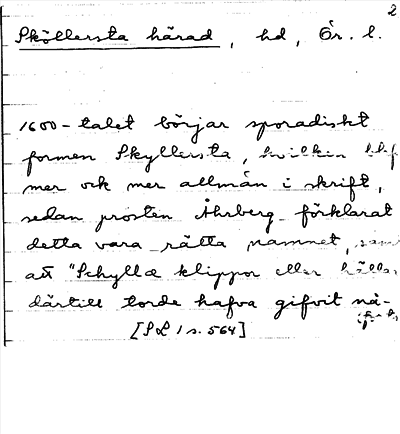 2
Sköllersta härad, hd, Ör. l.
1600-talet börjar sporadiskt
formen Skyllersta, hvilken blef
mer och mer allmän i skrift,
sedan prosten Åhrberg förklarat
detta vara rätta namnet, samt
att "Schyllæ klippor eller hällar
därtill torde hafva gifvit nå-
[SL 1 s. 564]